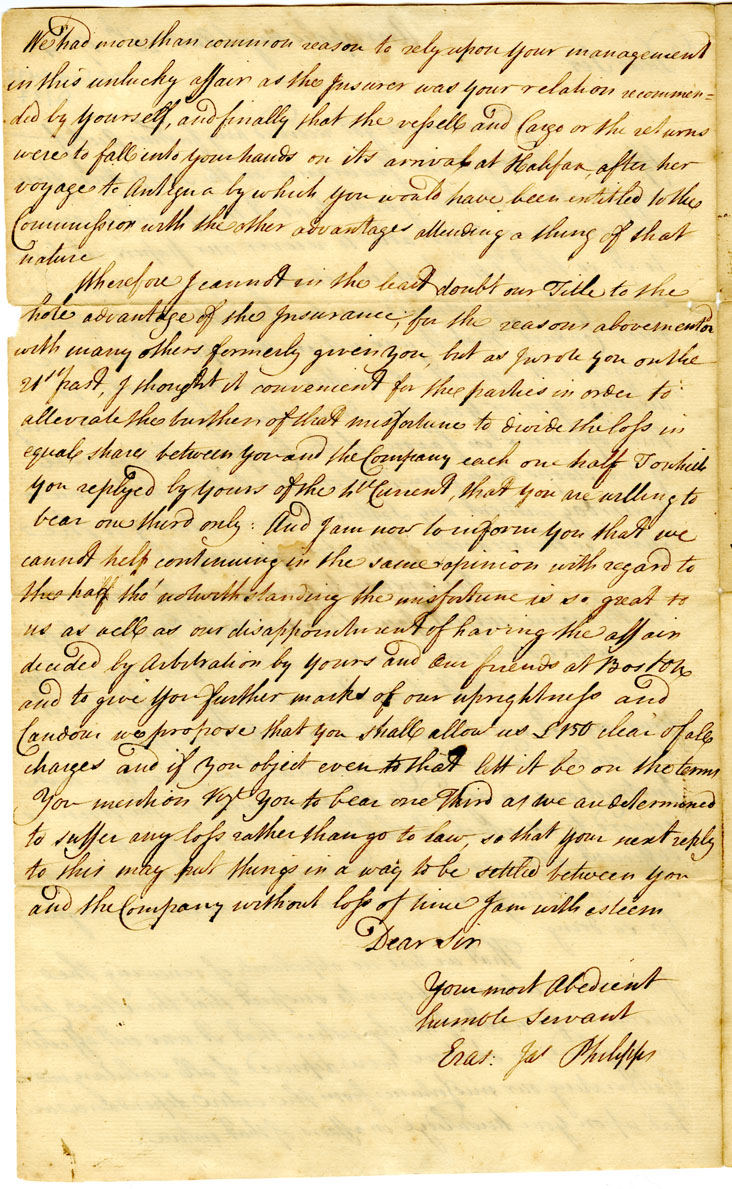 We had more than common reason to rely upon your management
in this unlucky affair as the Insurer was your relation recommen=
ded by yourself, and finally that the vessell and Cargo or the returns
were to fall into your hands on its arrival at Halifax after her
voyage to Antigua by which you would have been entitled to the
Commission with the other advantages attending a thing of that
nature
Wherefore I cannot in the least doubt our Title to the
hole advantage of the Insurance, for the reasons abovemention
with many others formerly given you, but as I wrote you on the
21st past, I thought it convenient for the parties in order to
alleviate the burthen of that misfortune to divide the loss in
equal shares between you and the Company each one half To which
you replyed by yours of the 4th Current, that you are willing to
bear one third only: And I am now to inform you that we
cannot help continuing in the same opinion with regard to
the half tho' notwithstanding the misfortune is so great to
us as well as our disappointment of having the affair
decided by Arbitration by yours and our friends at Boston
and to give you further marks of our uprightness and
Candour we propose that you shall allow us £150 clear of all
charges and if you object even to that lett it be on the terms
You mention Vizt You to bear one Third as we are determined
to suffer any loss rather than go to law, so that your next reply
to this may put things in a way to be settled between you
and the Company without loss of time I am with esteem
Dear Sir
Your most Obedient
humble Servant
Eras: Jas Philipps